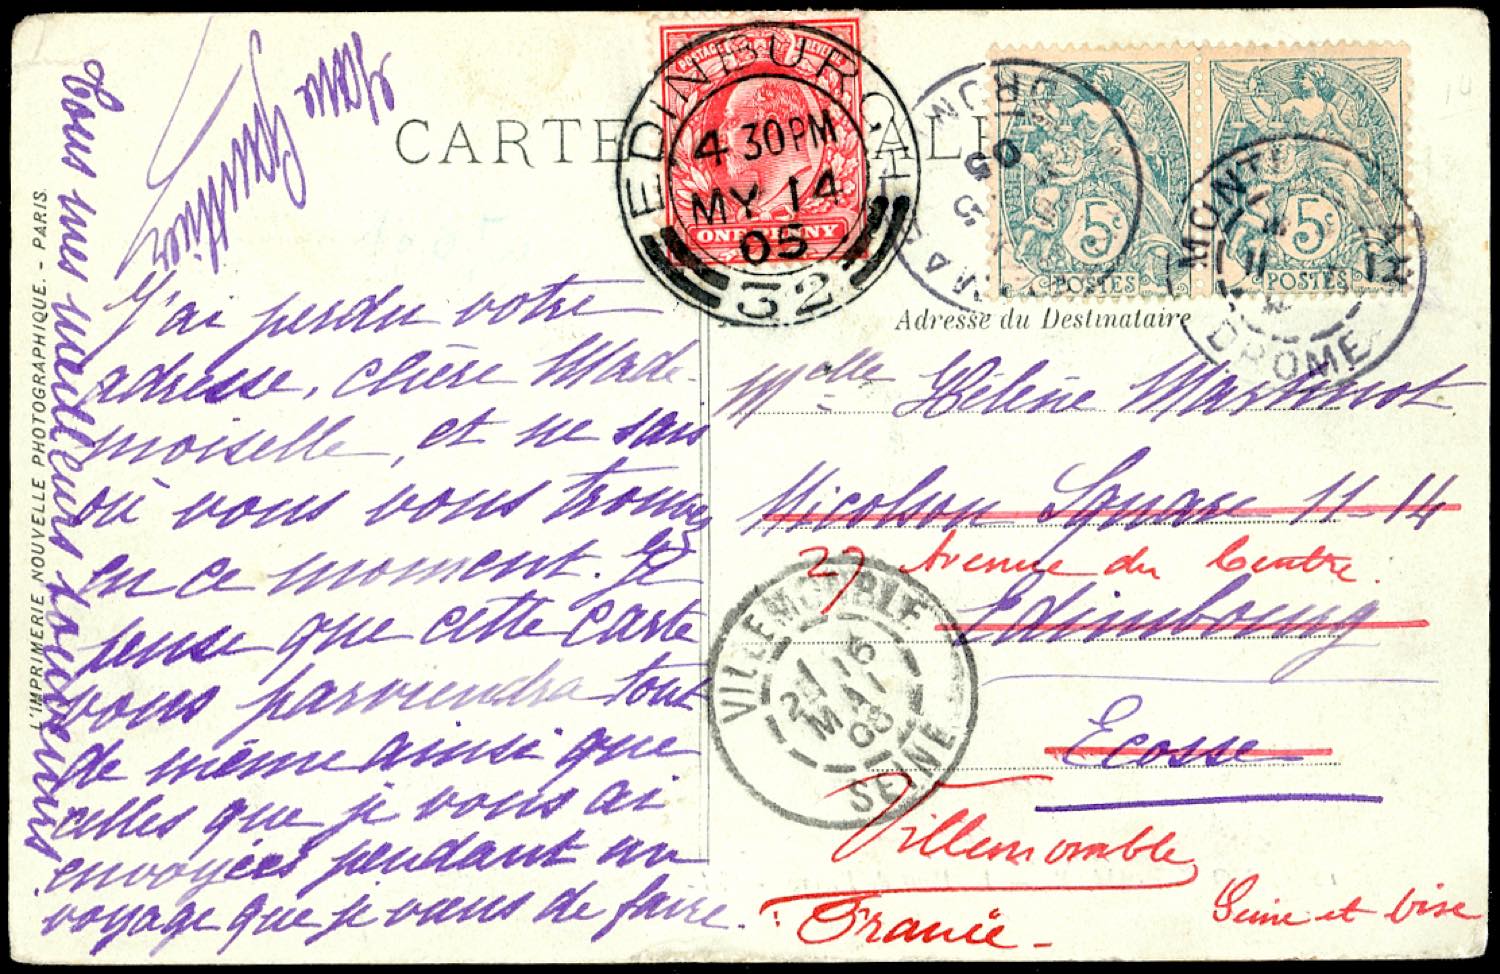 CARTE
EDINBURGH
4 30PM
MY 14
05
32
POSTAGE
ONE PENNY
5c
POSTES
5c
POSTES
MONT
11
DROME
Adresse du Destinataire
Melle Hélène Martinot
Nicolson Square 11-14
27 Avenue du Centre.
Edimbourg
Ecosse
Villemomble
Seine et Oise
France
VILEMOMBLE
16
MAI
05
SEINE
J'ai perdu votre
adresse, chère Made-
moiselle, et ne sais
où vous vous trouvez
en ce moment. Je
pense que cette carte
vous parviendra tout
de même ainsi que
celles que je vous ai
envoyées pendant un
voyage que je viens de faire.
Tous mes meilleurs souvenirs
L'IMPRIMERIE NOUVELLE PHOTOGRAPHIQUE. - PARIS